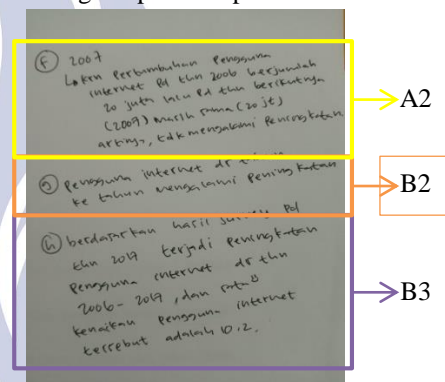 (f) 2007
↳ krn pertumbuhan pengguna
internet pd thn 2006 berjumlah
20 juta lalu pd thn berikutnya
(2007) masih sama (20 jt)
artinya, tdk mengalami peningkatan
A2
(g) pengguna internet dr tahun
ke tahun mengalami peningkatan
B2
(h) berdasarkan hasil survey pd
thn 2017 terjadi peningkatan
pengguna internet dr thn
2006-2017, dan rata²
kenaikan pengguna internet
tersebut adalah 10,2.
B3